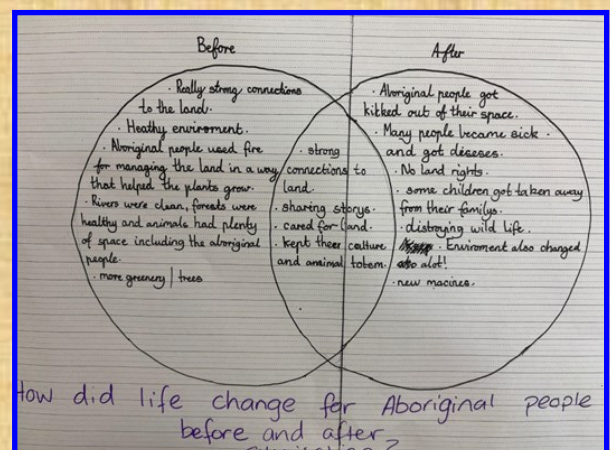 Before
· Really strong connections
to the land.
· Heathy enviroment.
· Aboriginal people used fire
for managing the land in a way
that helped the plants grow.
· Rivers were clean, forests were
healthy and animals had plenty
of space including the aboriginal
people.
· more greenery | trees
· strong
connections to
land.
· sharing storys.
· cared for land.
· kept there culture
and animal totem.
After
· Aboriginal people got
kitked out of their space.
· Many people became sick
and got diseses.
· No land rights.
· some children got taken away
from their familys.
· distroying wild life.
· Enviroment also changed
alot!
· new macines.
How did life change for Aboriginal people
before and after